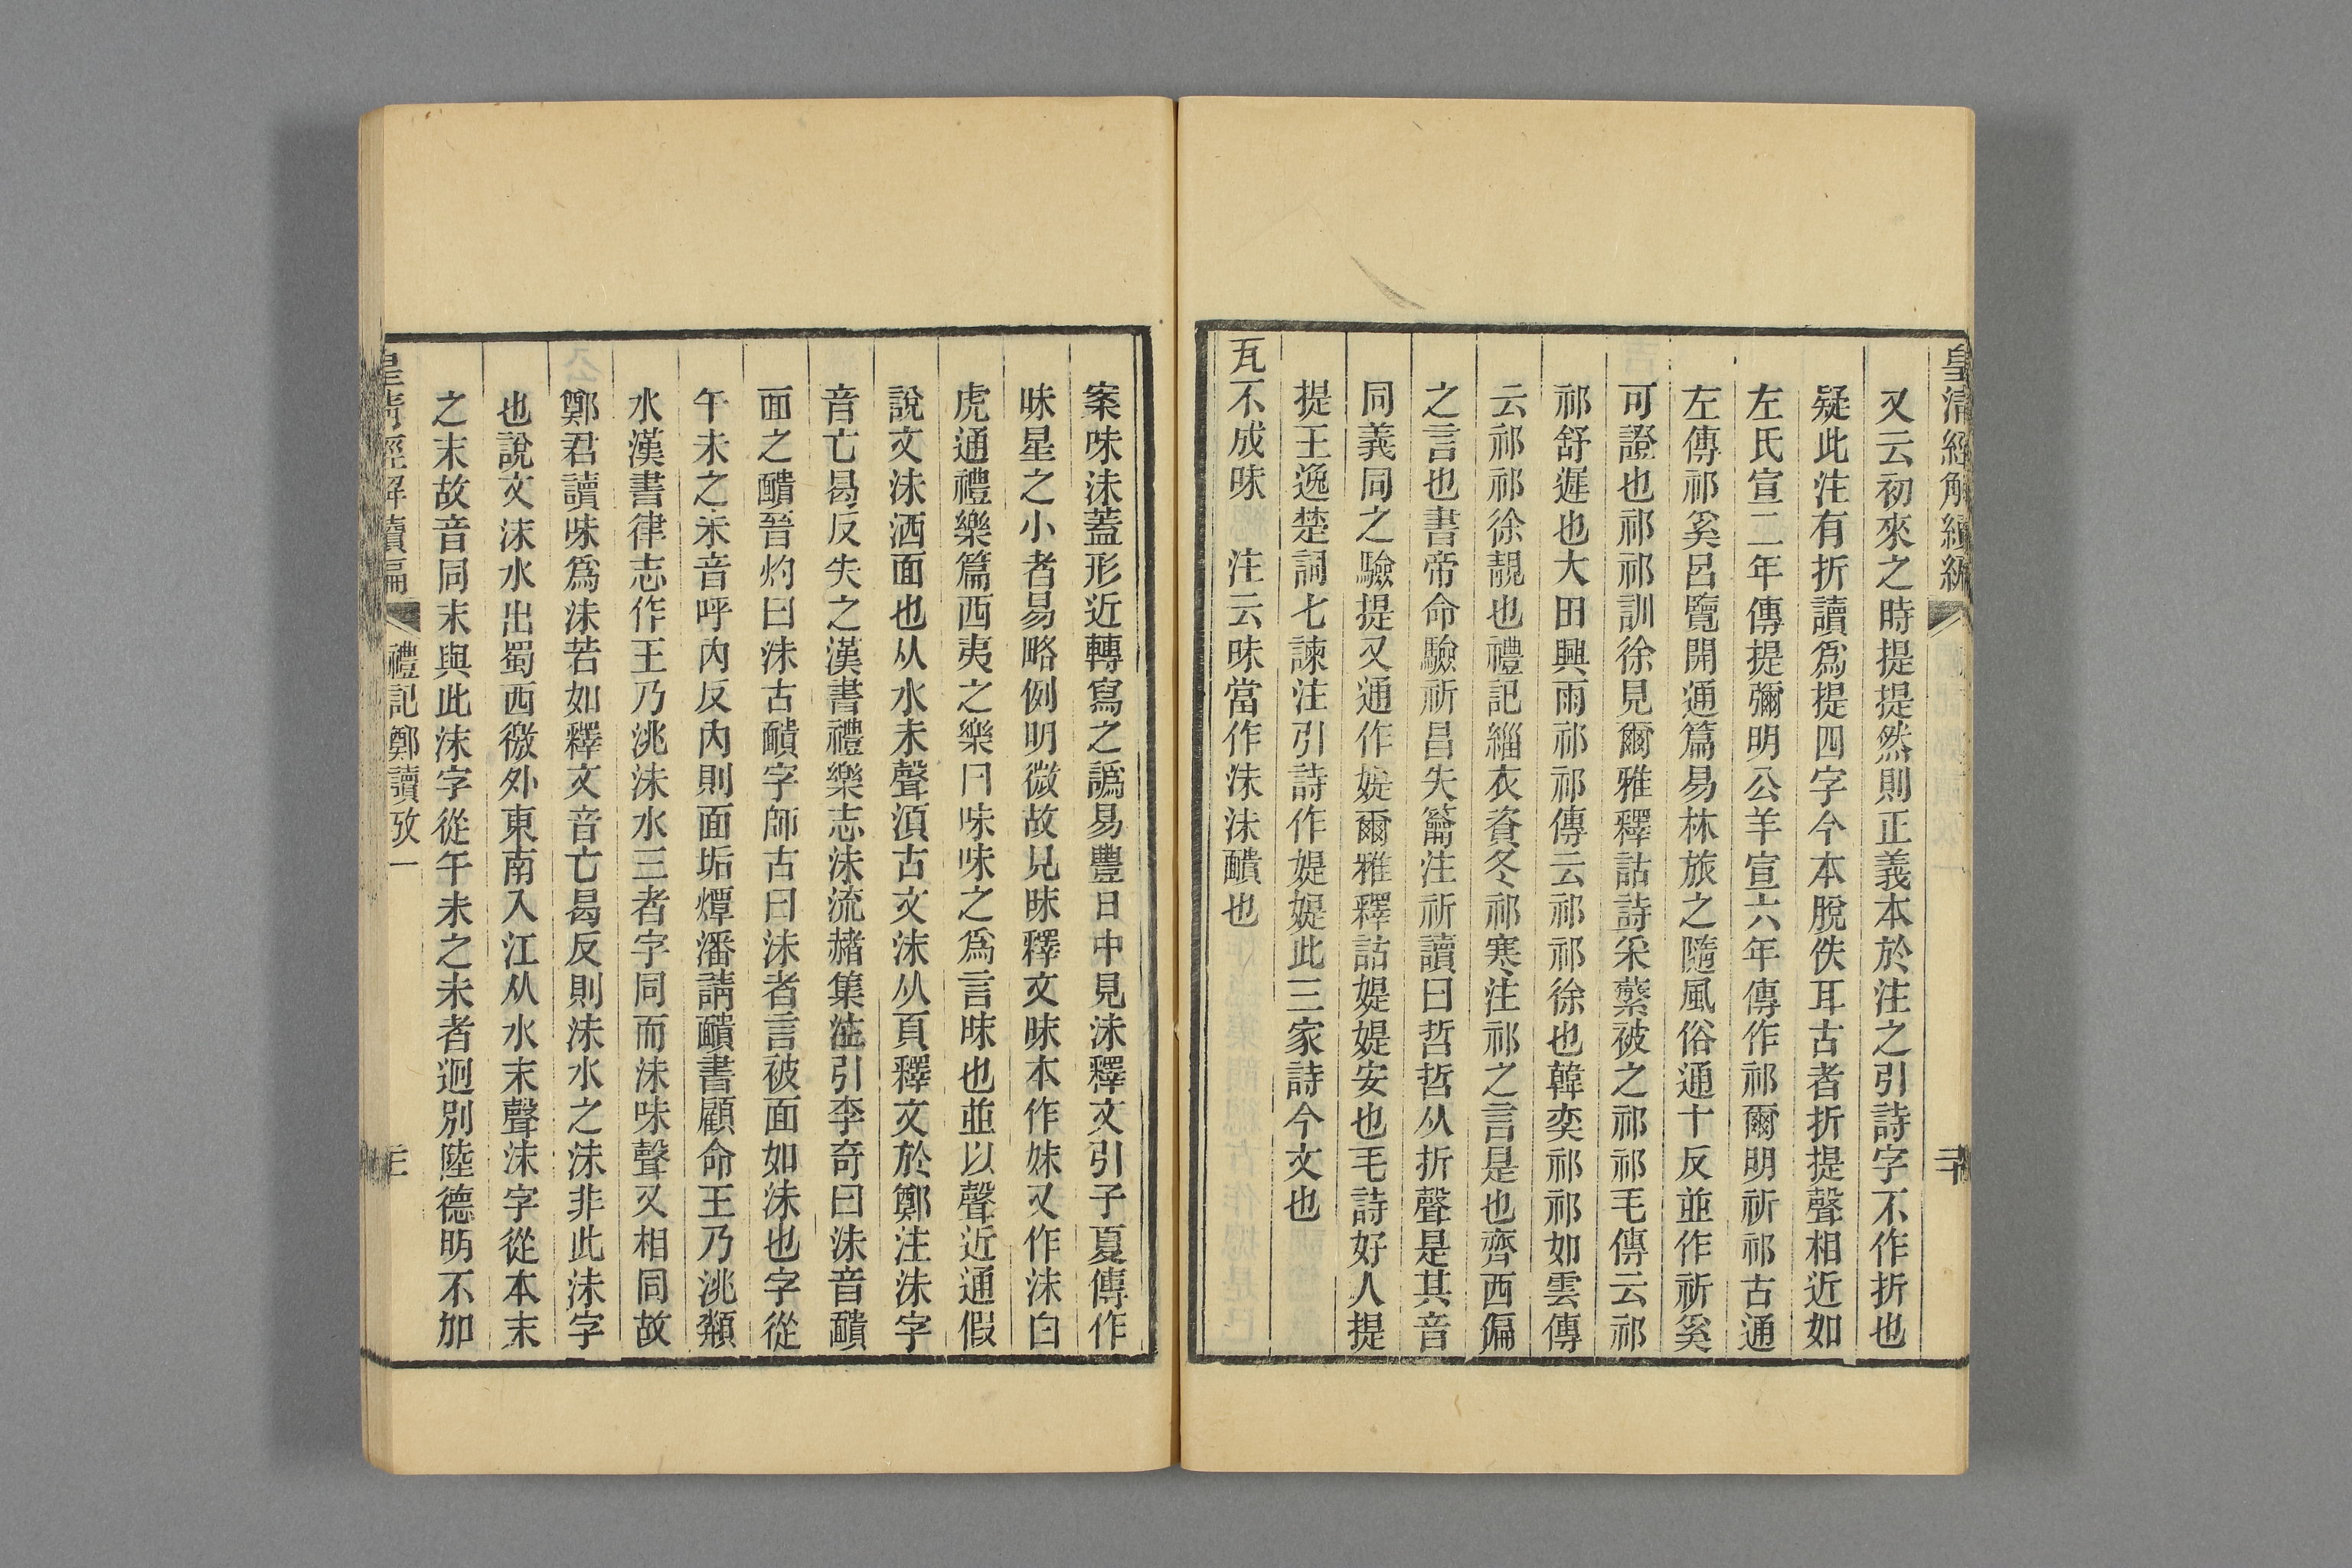 皇清經解續編
又云初來之時提提然則正義本於注之引詩字不作折也
疑此注有折讀爲提四字今本脫佚耳古者折提聲相近如
左氏宣二年傳提彌明公羊宣六年傳作祁爾明祈祁古通
左傳祁奚呂覽開通篇易林旅之隨風俗通十反並作祈奚
可證也祁祁訓徐見爾雅釋詁詩采蘩被之祁祁毛傳云祁
祁舒遲也大田興雨祁祁傳云祁祁徐也韓奕祁祁如雲傳
云祁祁徐靚也禮記緇衣資冬祁寒注祁之言是也齊西偏
之言也書帝命驗祈昌失籥注祈讀曰哲哲从折聲是其音
同義同之驗提又通作媞爾雅釋詁媞媞安也毛詩好人提
提王逸楚詞七諫注引詩作媞媞此三家詩今文也
瓦不成味　注云味當作沬沬靧也
案味沬蓋形近轉寫之譌易豐日中見沬釋文引子夏傳作
昧星之小者易略例明微故見昧釋文昧本作妹又作沬白
虎通禮樂篇西夷之樂曰味味之爲言昧也並以聲近通假
說文沬洒面也从水未聲湏古文沬从頁釋文於鄭注沬字
音亡曷反失之漢書禮樂志沬流赭集注引李奇曰沬音靧
面之靧晉灼曰沬古靧字師古曰沬者言被面如沬也字從
午未之未音呼內反內則面垢燂潘請靧書顧命王乃洮頮
水漢書律志作王乃洮沬水三者字同而沬味聲又相同故
鄭君讀味爲沬若如釋文音亡曷反則沬水之沬非此沬字
也說文沫水出蜀西徼外東南入江从水末聲沫字從本末
之末故音同末與此沬字從午未之未者迥別陸德明不加
皇清經解續編　禮記鄭讀攷一